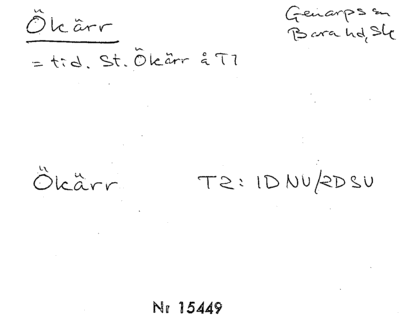 Ökärr
Genarps sn
Bara hd, Sk
= tid. St. Ökärr å T1
Ökärr T2: 1D NV/2D SV
Nr 15449